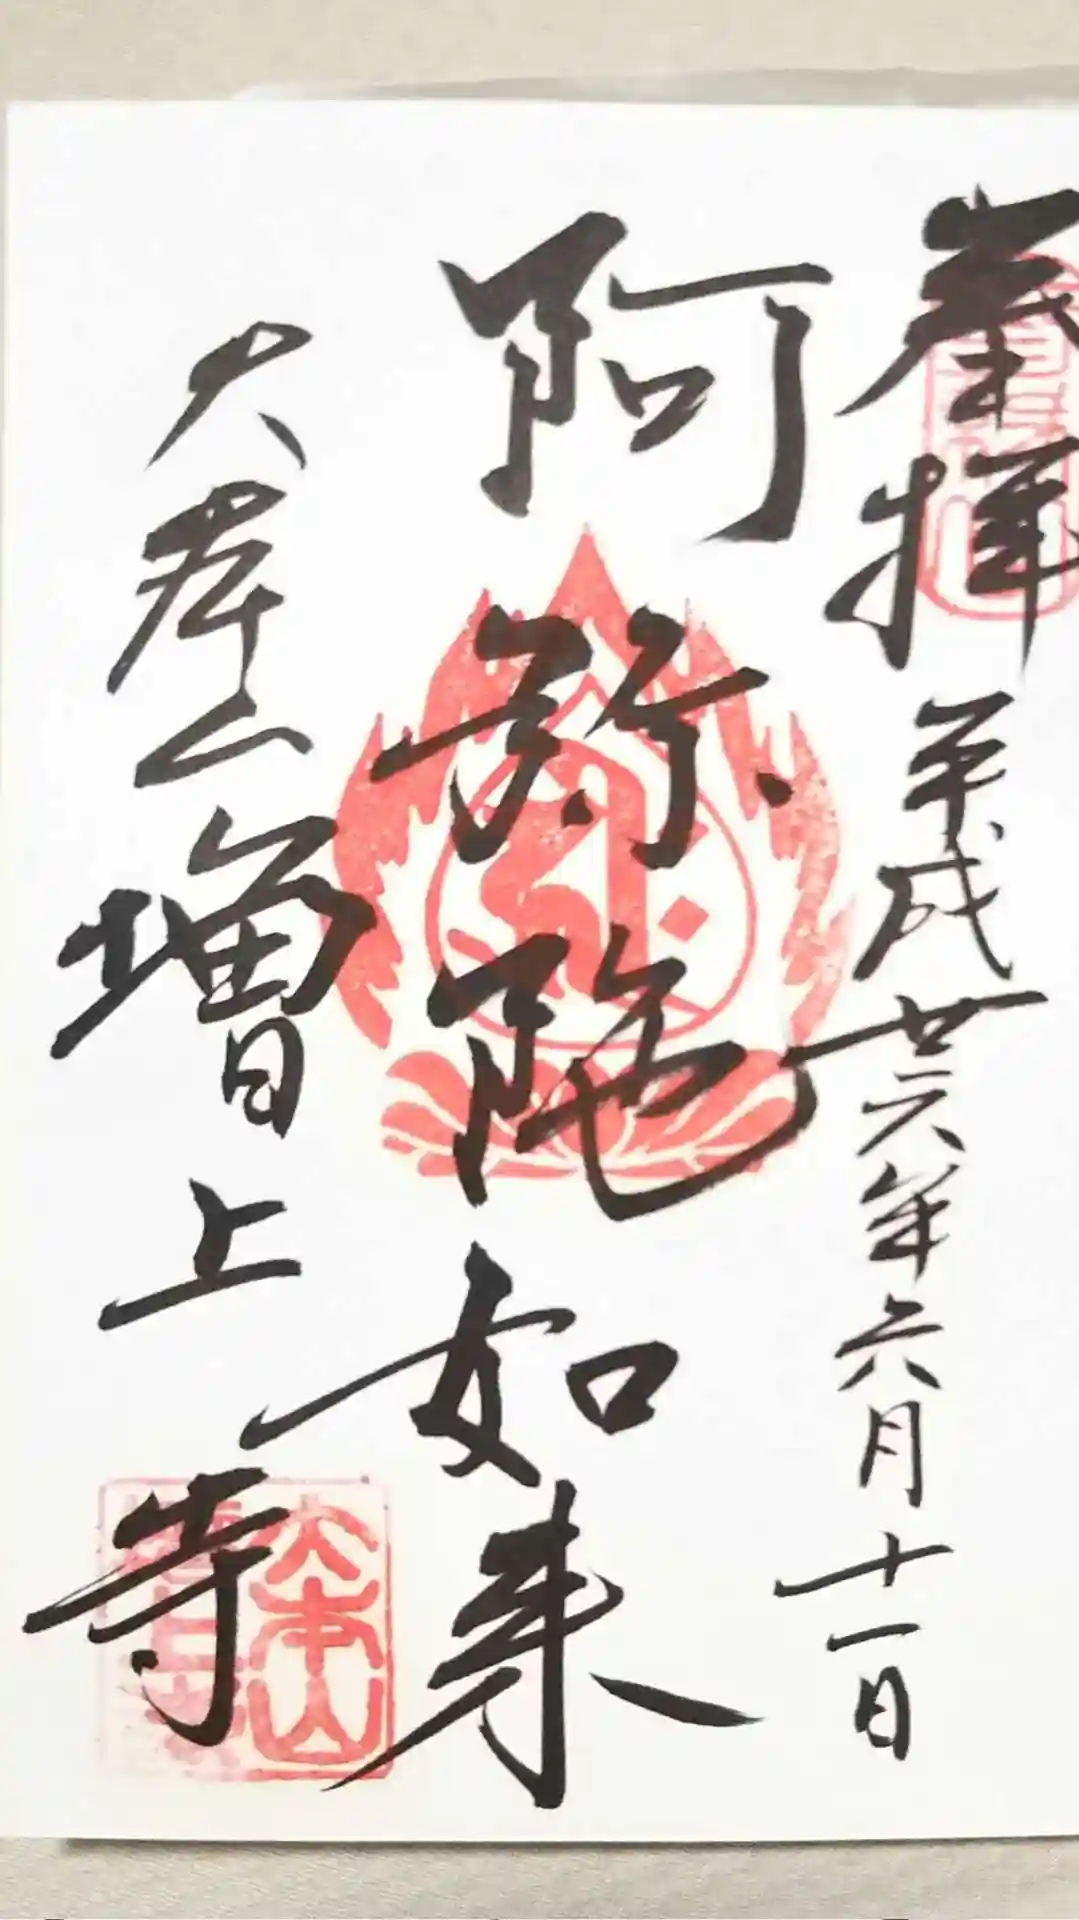 奉拝
平成廿六年六月十一日
阿弥陀如来
大本山
増上寺
大本山